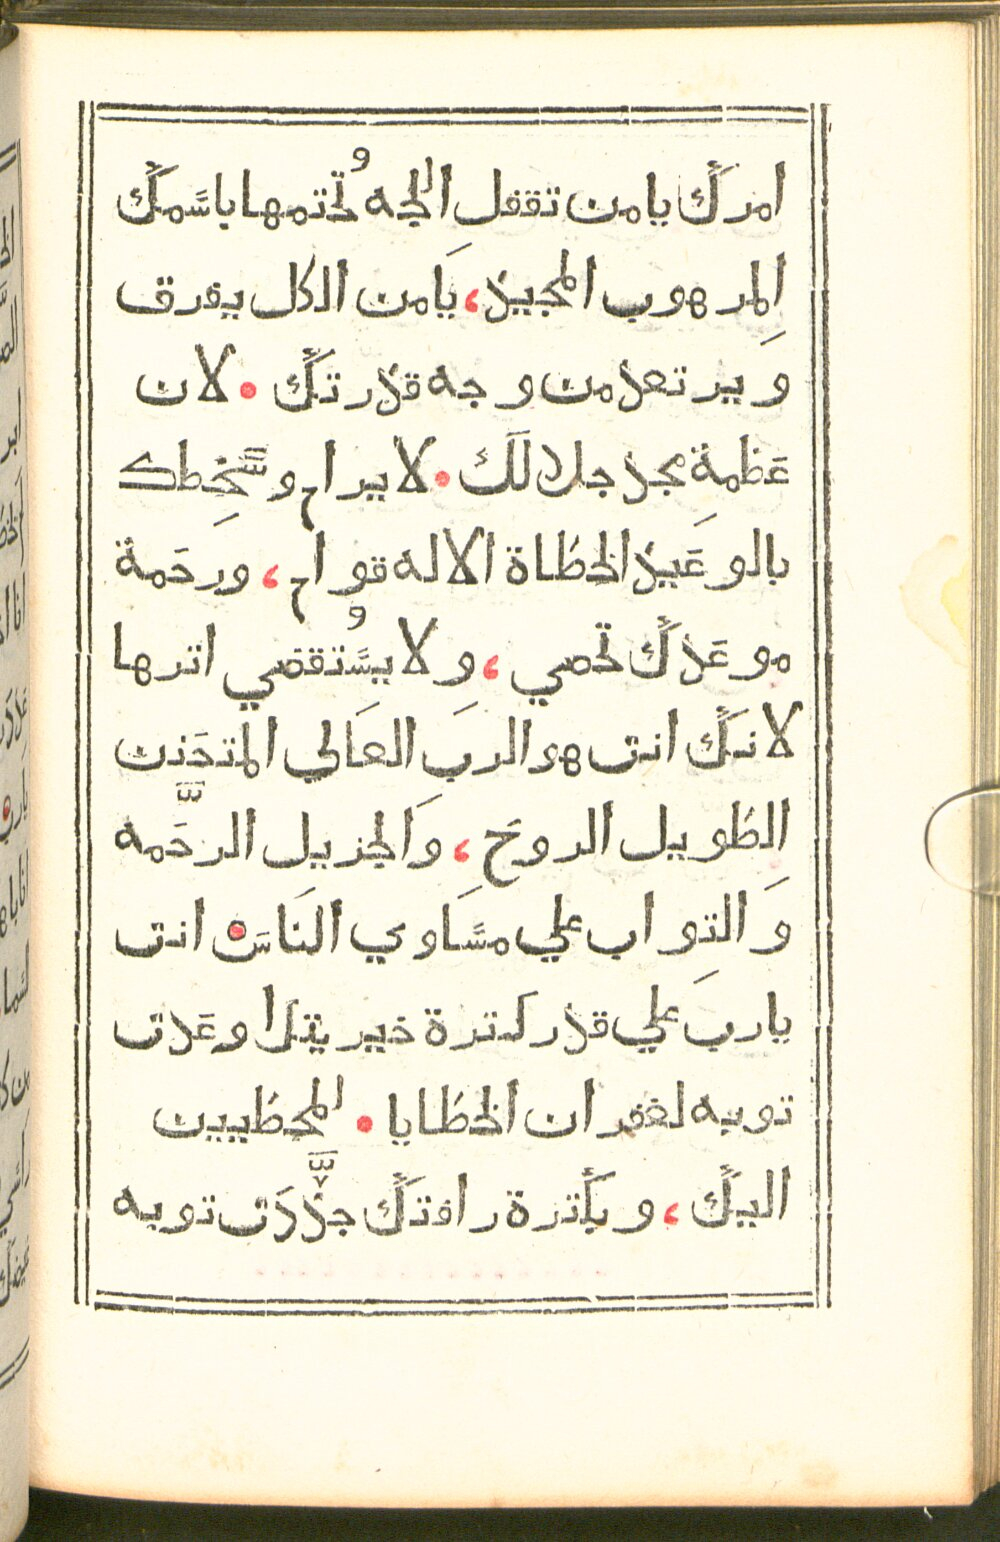 امرك يا من تقفل اللجه وتختمها باسمك
المرهوب المجيد، يا من الكل يفرق
ويرتعد من وجه قدرتك • لان
عظمة مجد جلالك • لا يرام وسخطك
بالوعيد الخطاة الا له قوام، ورحمة
موعدك تحصي، ولا يستقصي اترها
لانك انت هو الرب العالي المتحنن
الطويل الروح، والجزيل الرحمه
والتواب علي مساوي الناس انت
يارب علي قدر كترة خيريتك اوعدت
توبه لغفران الخطايا • المخطيين
اليك، وبكترة رافتك حددت توبه